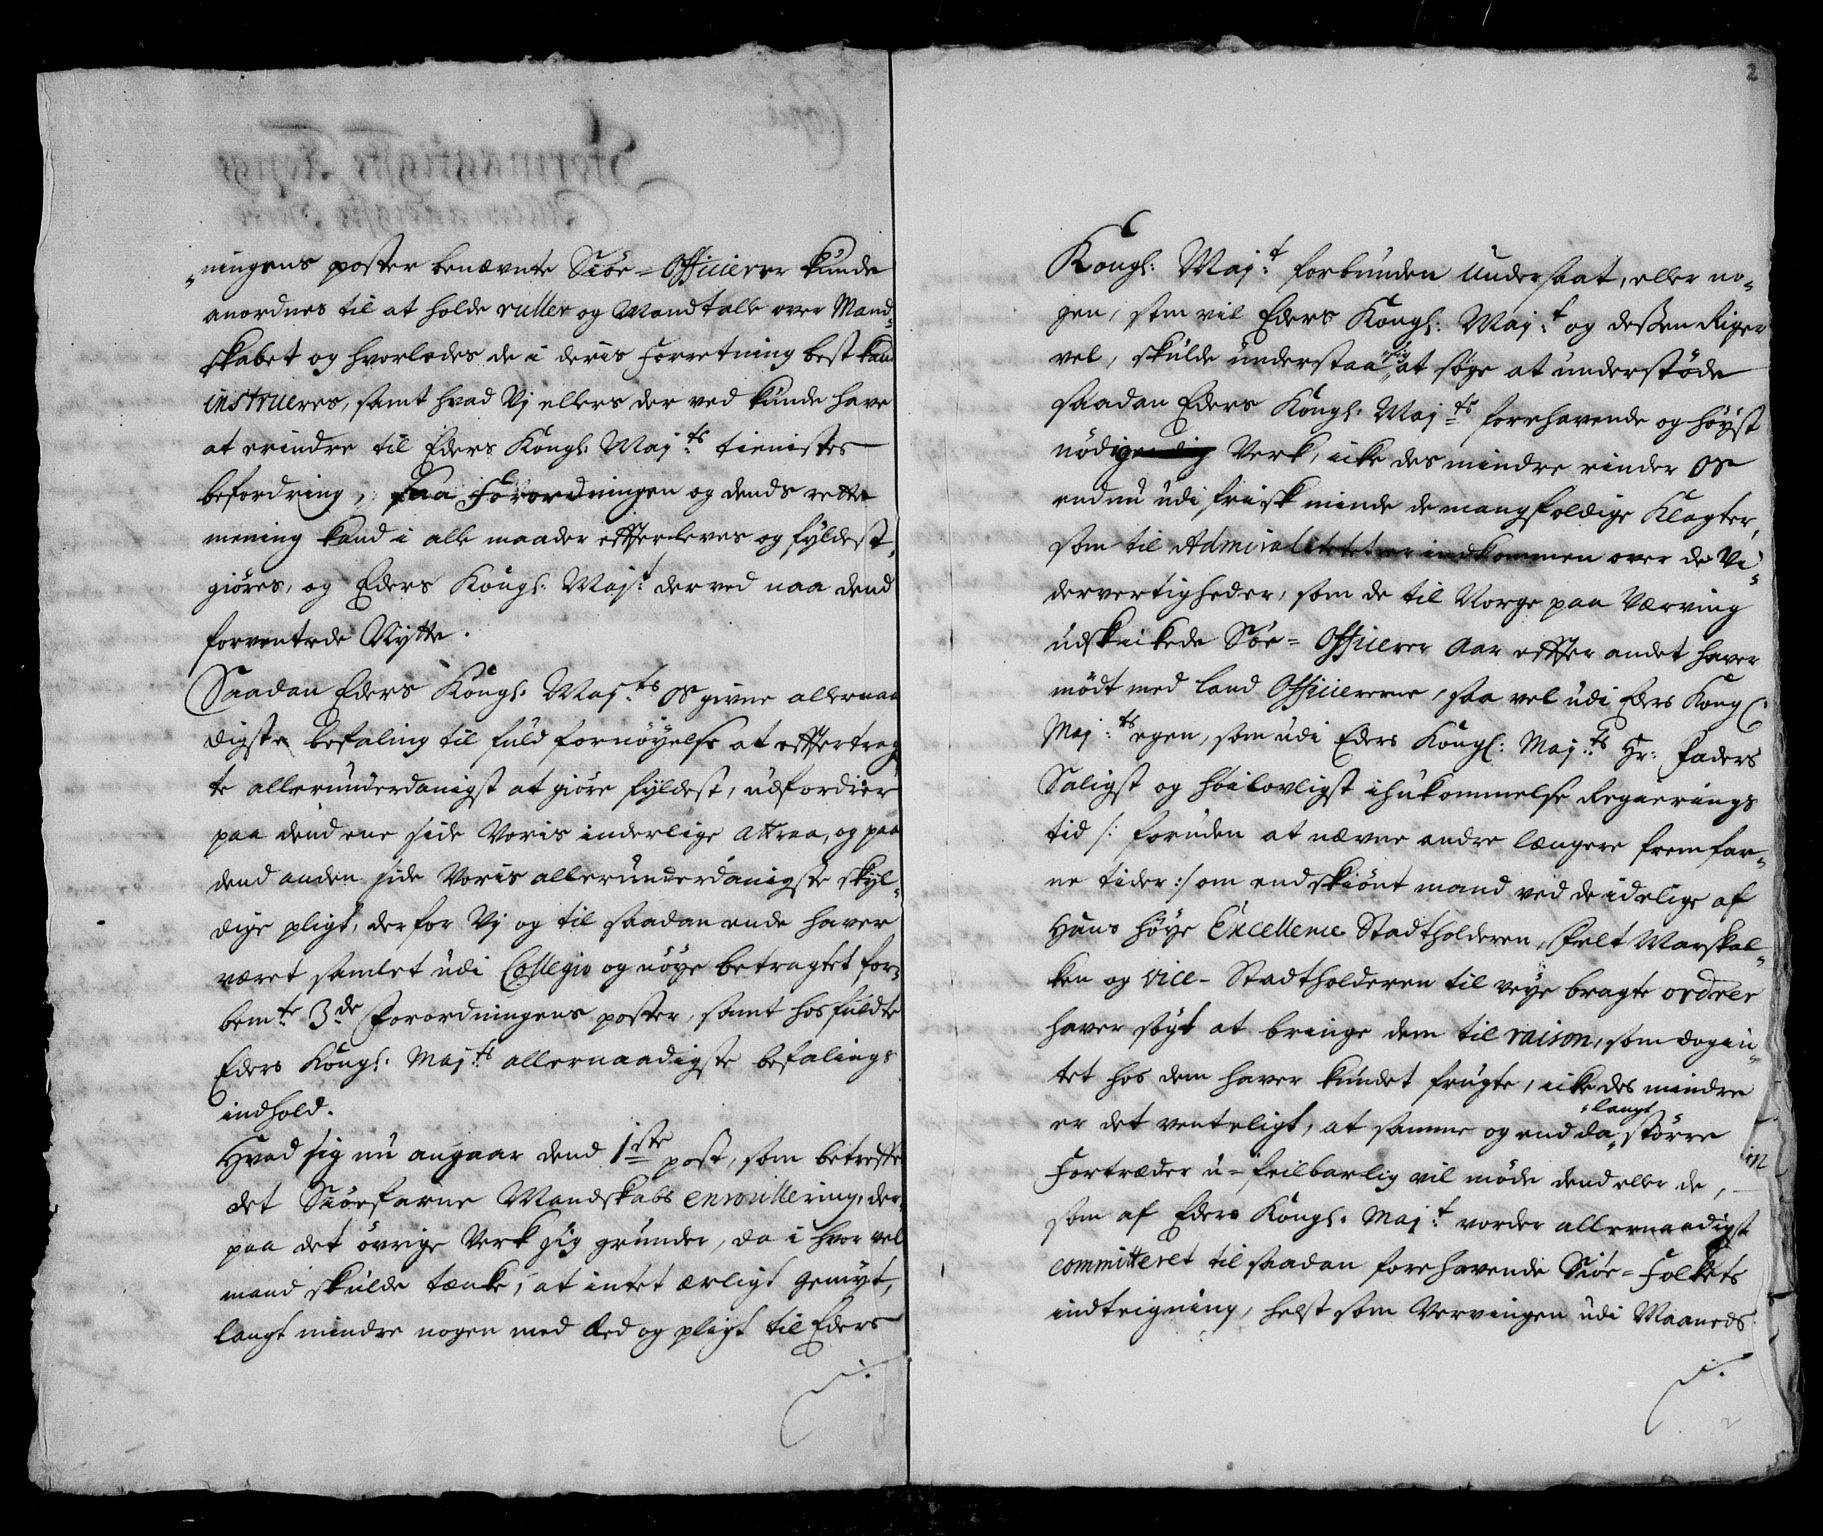 „ningens poster benævnte Siöe-Officierer kunde
anordnes til at holde ruller og Mandtalle over Mand-
skabet og hvorledes de i deris Forretning best kand
instrueres, samt hvad Vj ellers der ved kunde have
at erindre til Eders Kongl: Maj:ts tienistes
befordring, paa Forordningen og dends rette
mening kand i alle maader efterleves og fyldest„
giöres, og Eders Kongl: Maj:t derved naa dend
forventede Nytte.
Saadan Eders Kongl: Maj:ts os givne allernaa
digste befaling til fuld fornöyelse at eftertrag
te allerunderdanigst at giöre fyldest, udfordrer
paa dend ene side Voris inderlige attraa, og paa
dend anden side Voris allerunderdanigste skyl„
dige pligt, derfor Vj og til saadan ende haver
været samlet udi Collegio og nöye betragtet for„
bem:te 3de Forordningens poster, samt hosfuldte
Eders Kongl: Maj:ts allernaadigste befalings
indhold.
Hvad sig nu angaar dend 1ste post, som betreffe
det Siöefarne Mandskabs enroullering, der„
paa det övrige Verk sig grunder, da i hvor vel
mand skulde tænke, at intet ærligt gemyt,
langt mindre nogen med Eed og pligt til Eders
2
Kongl: Maj:t forbunden Undersaat, eller no„
gen, som vil Eders Kongl: Maj:t og deßen Riger
vel, skulde understaa „sig„ at söge at understöde
saadan Eders Kongl: Maj:ts forehavende og höyst
nödig Verk, icke des mindre rinder os
endnu udi frisk minde de mangfoldige Klagter,
som til Admiralitetet er indkommen over de Vi„
dervertigheder, som de til Norge paa Værving
udskickede Söe-Officerer Aar efter andet haver
mödt med land Officiererne, saa vel udi Eders Kongl:
Maj:ts egen, som udi Eders Kongl: Maj:ts Hr: Faders
Saligst og höilovligst ihukommelse Regierings
tid /: foruden at nævne andre længere fremfar„
ne tider :/ om endskiönt mand ved de idelige af
Hans höye Excellence Stadtholderen, Felt Marskal„
ken og vice-Stadtholderen til veye bragte ordrer
haver sögt at bringe dem til raison, som dog in„
tet hos dem haver kundet frugte, icke des mindre
er det venteligt, at samme og end da „langt större
Fortræder u-feilbarlig vil möde dend eller de,
som af Eders Kongl: Maj:t vorder allernaadigst
committeret til saadan forehavende Siöe-Folkets
indteigning, helst som Vervingen udi Maaneds